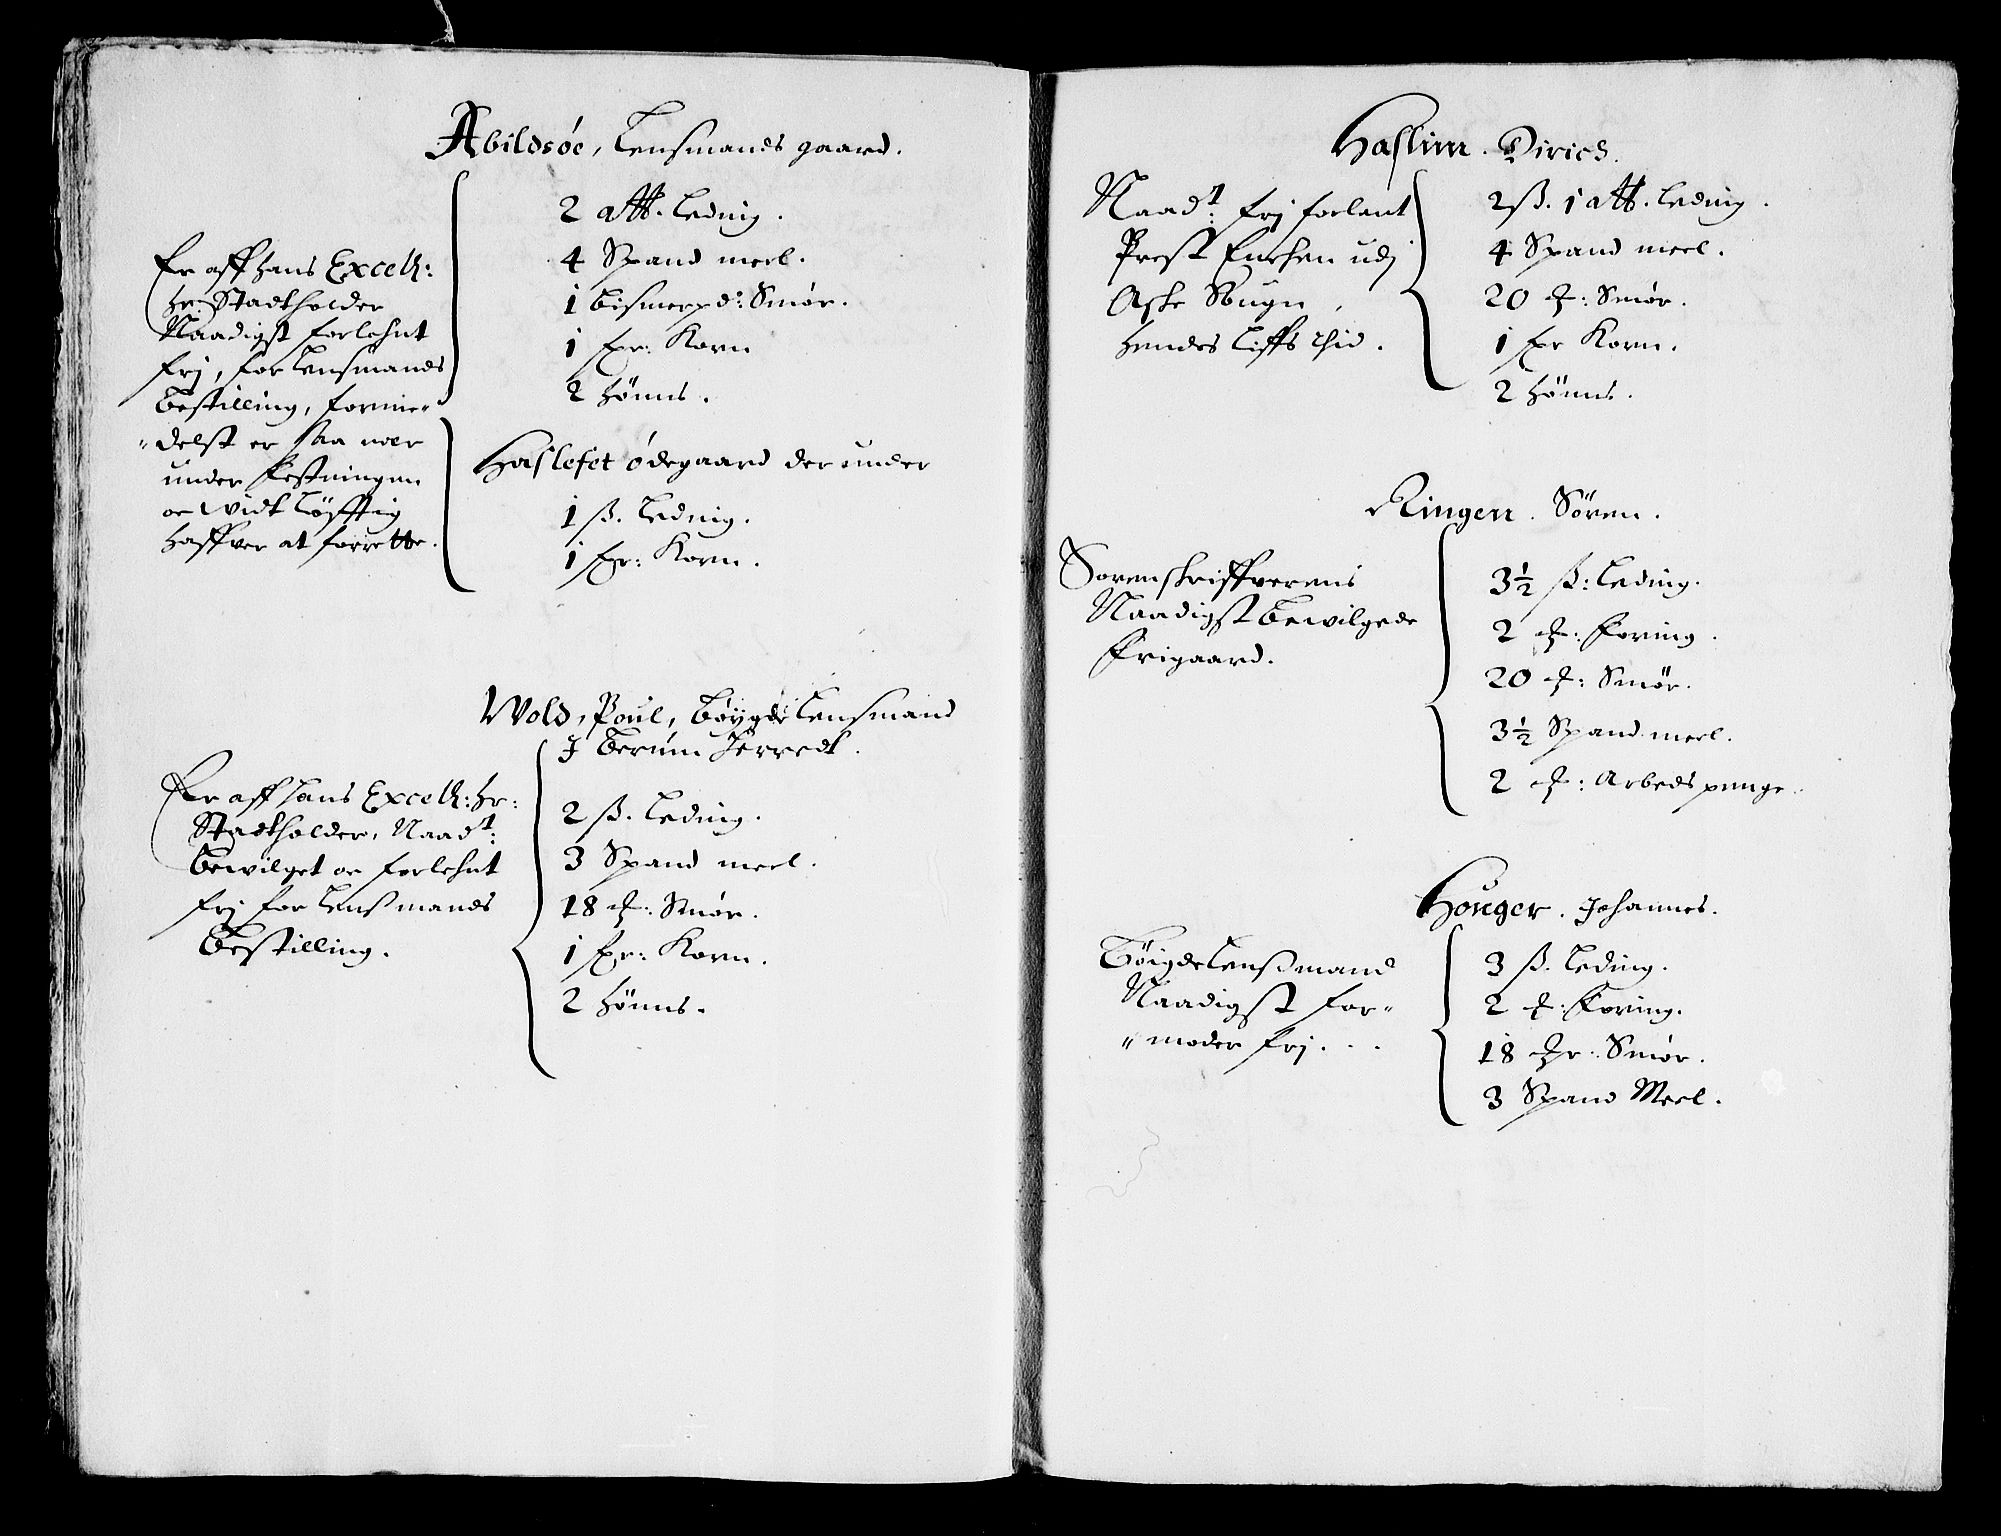 Abildsöe, Lensmands gaard.
Er aff hans Excell:
hr: Stadtholder
Naadigst forlehnt
frj, for Lensmands
bestilling, formie-
"delst er saa nær
under Festningen
oc widt löfftig
haffver at forrette.
2 att. Leding.
4 Spand meel.
1 bismerpd: Smör.
1 fr: Korn
2 hönns.
Haslefet ödegaard der under
1 ß. Leding.
1 fr: Korn.
Wold, Poul, böygde Lensmand
J berum Herredt.
Er aff hans Excell: hr:
Stadtholder, Naadt:
bewilget oc forlehnt
frj for Lensmands
bestilling.
2 ß. Leding.
3 Spand meel.
18 : Smör.
1 fr: Korn.
2 hönns.
Haslum. Dirich.
Naadt: frj forlent
Prest Enchen udj
Aske Sougn,
hendes Liffs thid.
2 ß. 1 att. Leding.
4 Spand meel.
20 : Smör.
1 fr Korn.
2 hönns.
Ringerr. Sören.
Sorenskriffverens
Naadigst bewilgede
Frigaard.
3½ ß: Leding.
2 : Foring.
20 : Smör.
3½ Spand meel.
2 : Arbeds penge.
Houger. Johannes.
Böigde Lensmand
Naadigst for-
"moder frj.
3 ß. Leding.
2 : Foring.
18 : Smör.
3 Spand Meel.